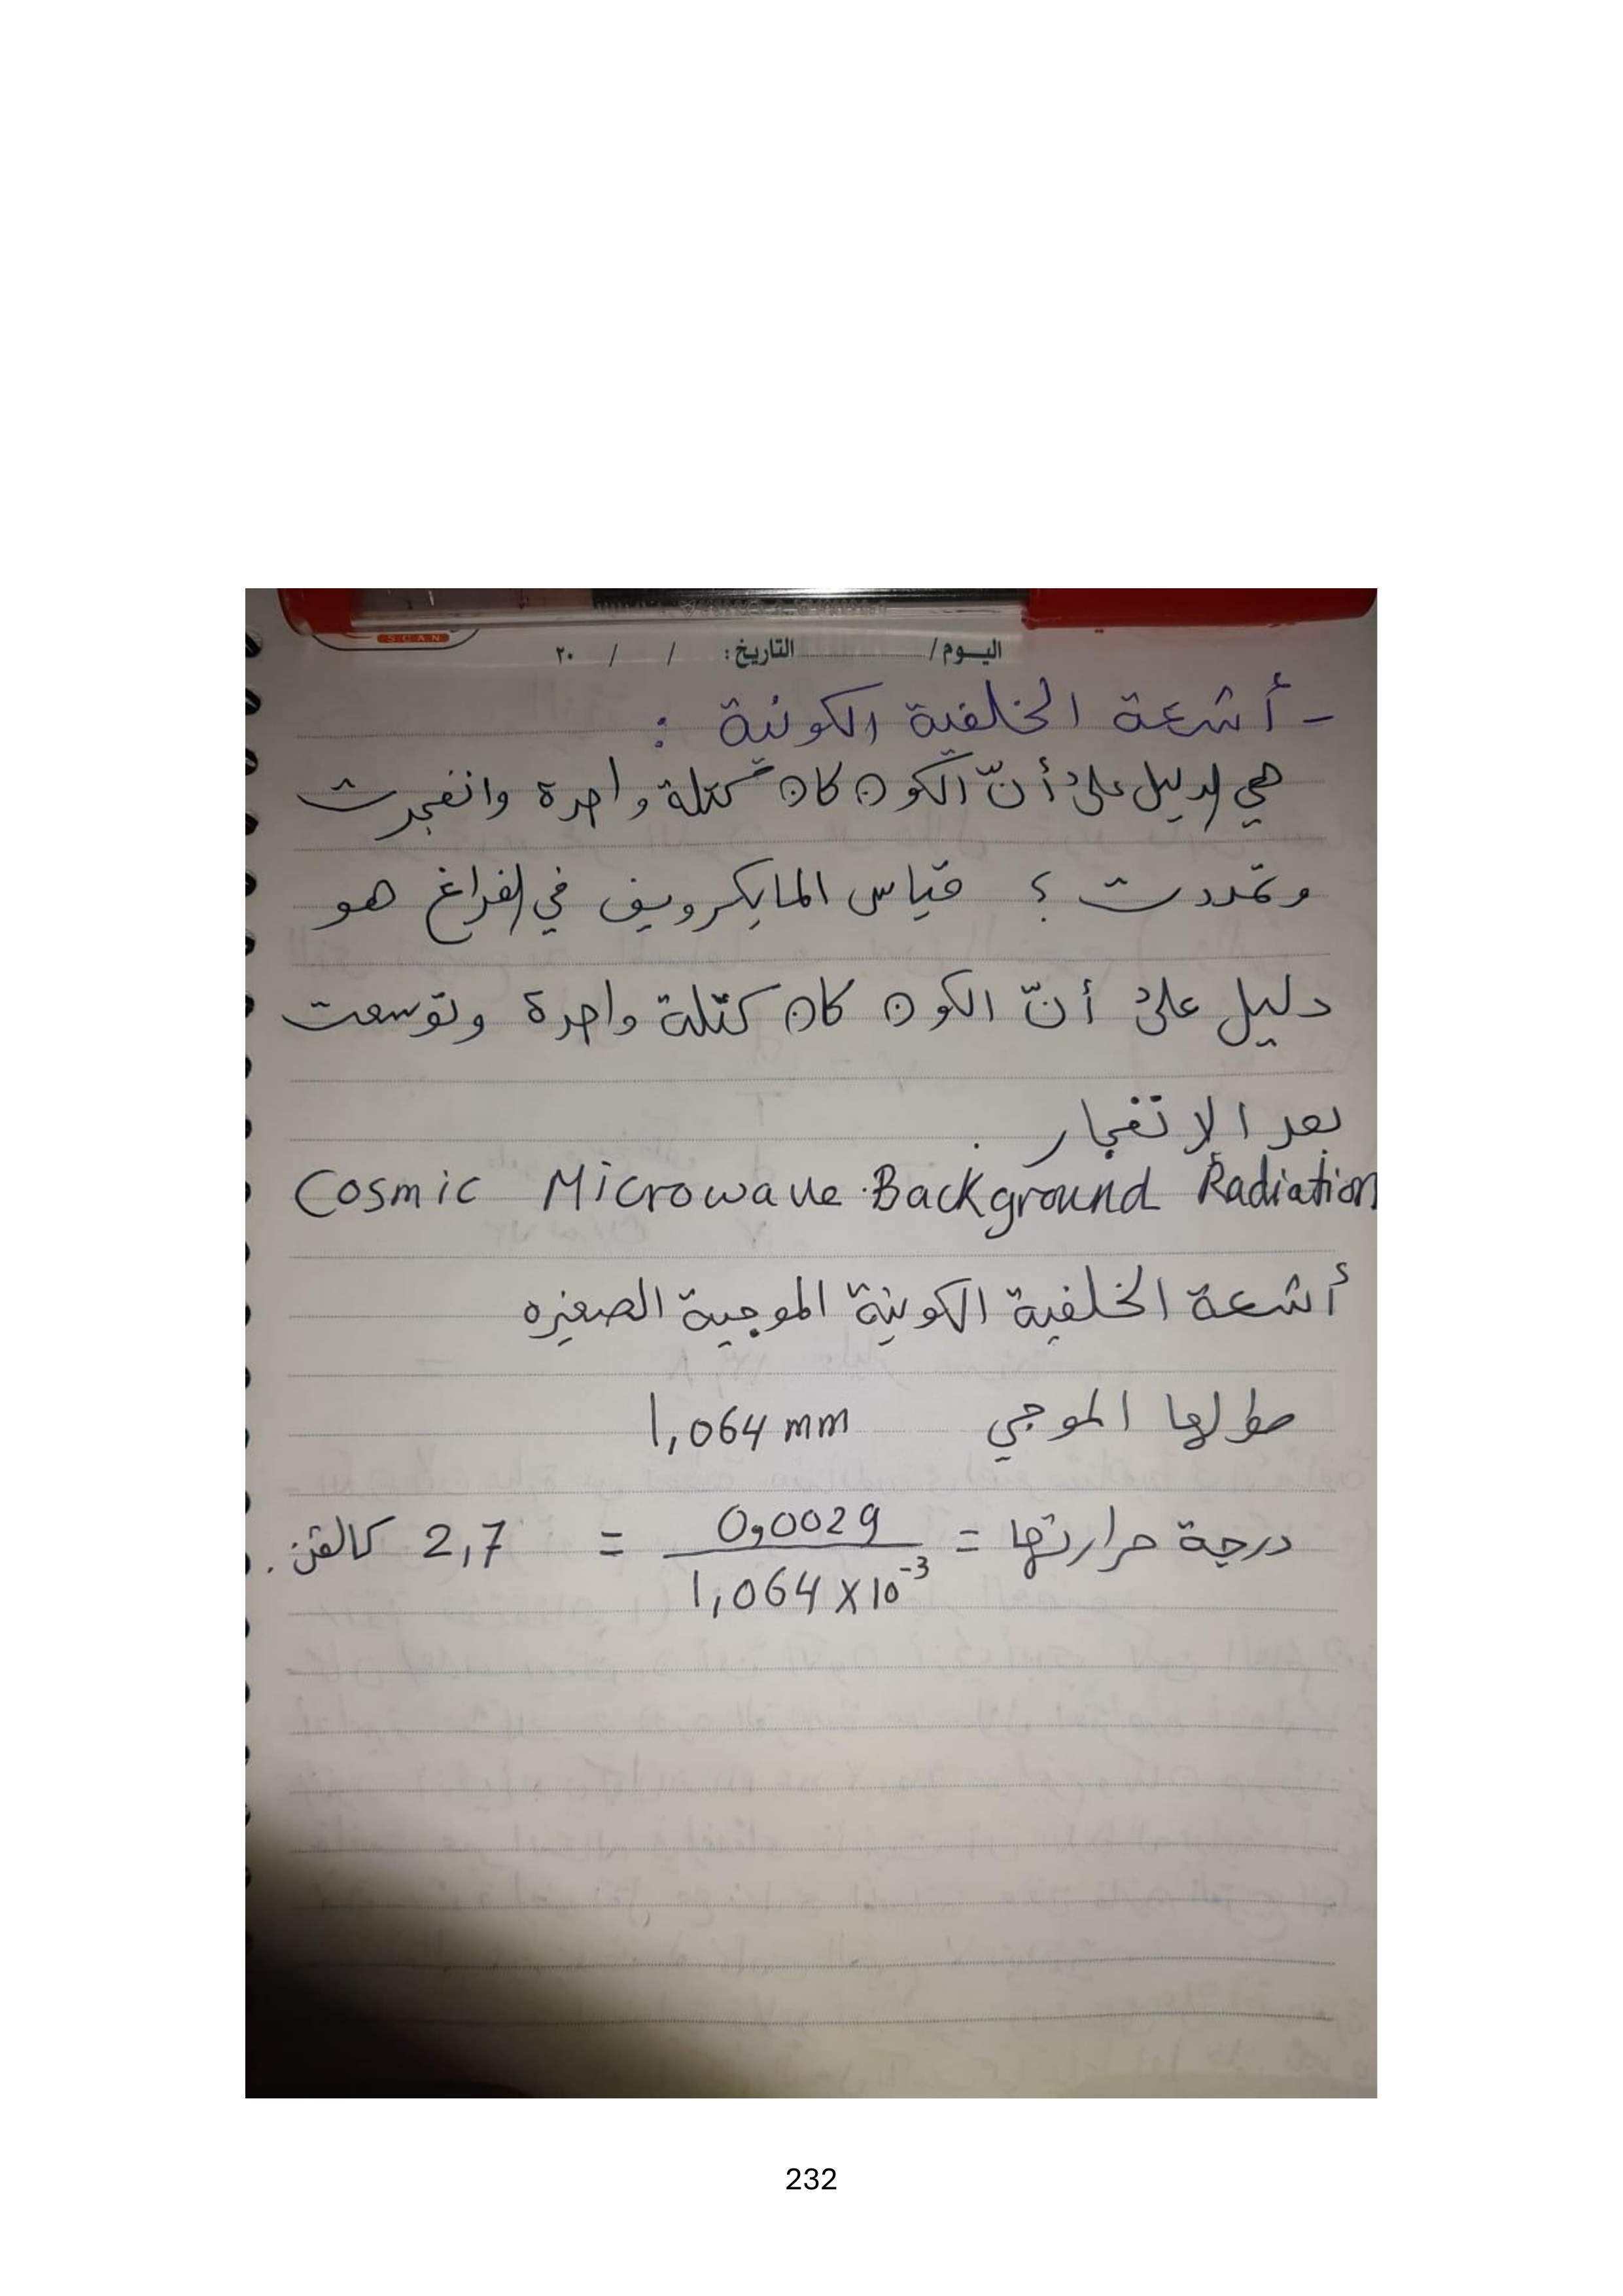 SCAN
اليوم/ التاريخ: / / ٢٠
- أشعة الخلفية الكونية :
هي الدليل على أنّ الكون كان كتلة واحدة وانفجرت
وتمددت ؟ قياس المايكرويف في الفراغ هو
دليل على أنّ الكون كان كتلة واحدة وتوسعت
بعد الإنفجار .
Cosmic Microwave Background Radiation
أشعة الخلفية الكونية الموجية الصغيره
طولها الموجي 1,064 mm
درجة حرارتها = 0,0029 / 1,064 x 10⁻³ = 2,7 كالفن .
232